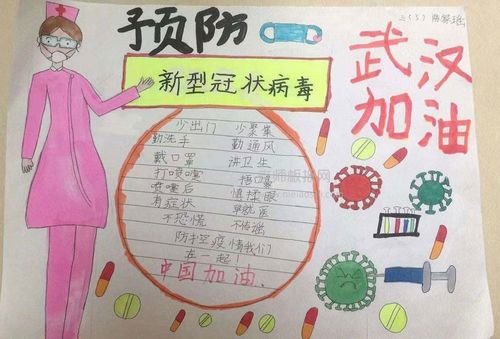 预防
新型冠状病毒
武汉
加油
少出门 少聚集
勤洗手 勤通风
戴口罩 讲卫生
打喷嚏 捂口鼻
喷嚏后 慎揉眼
有症状 早就医
不恐慌 不传谣
防控疫情我们
在一起!
中国加油.